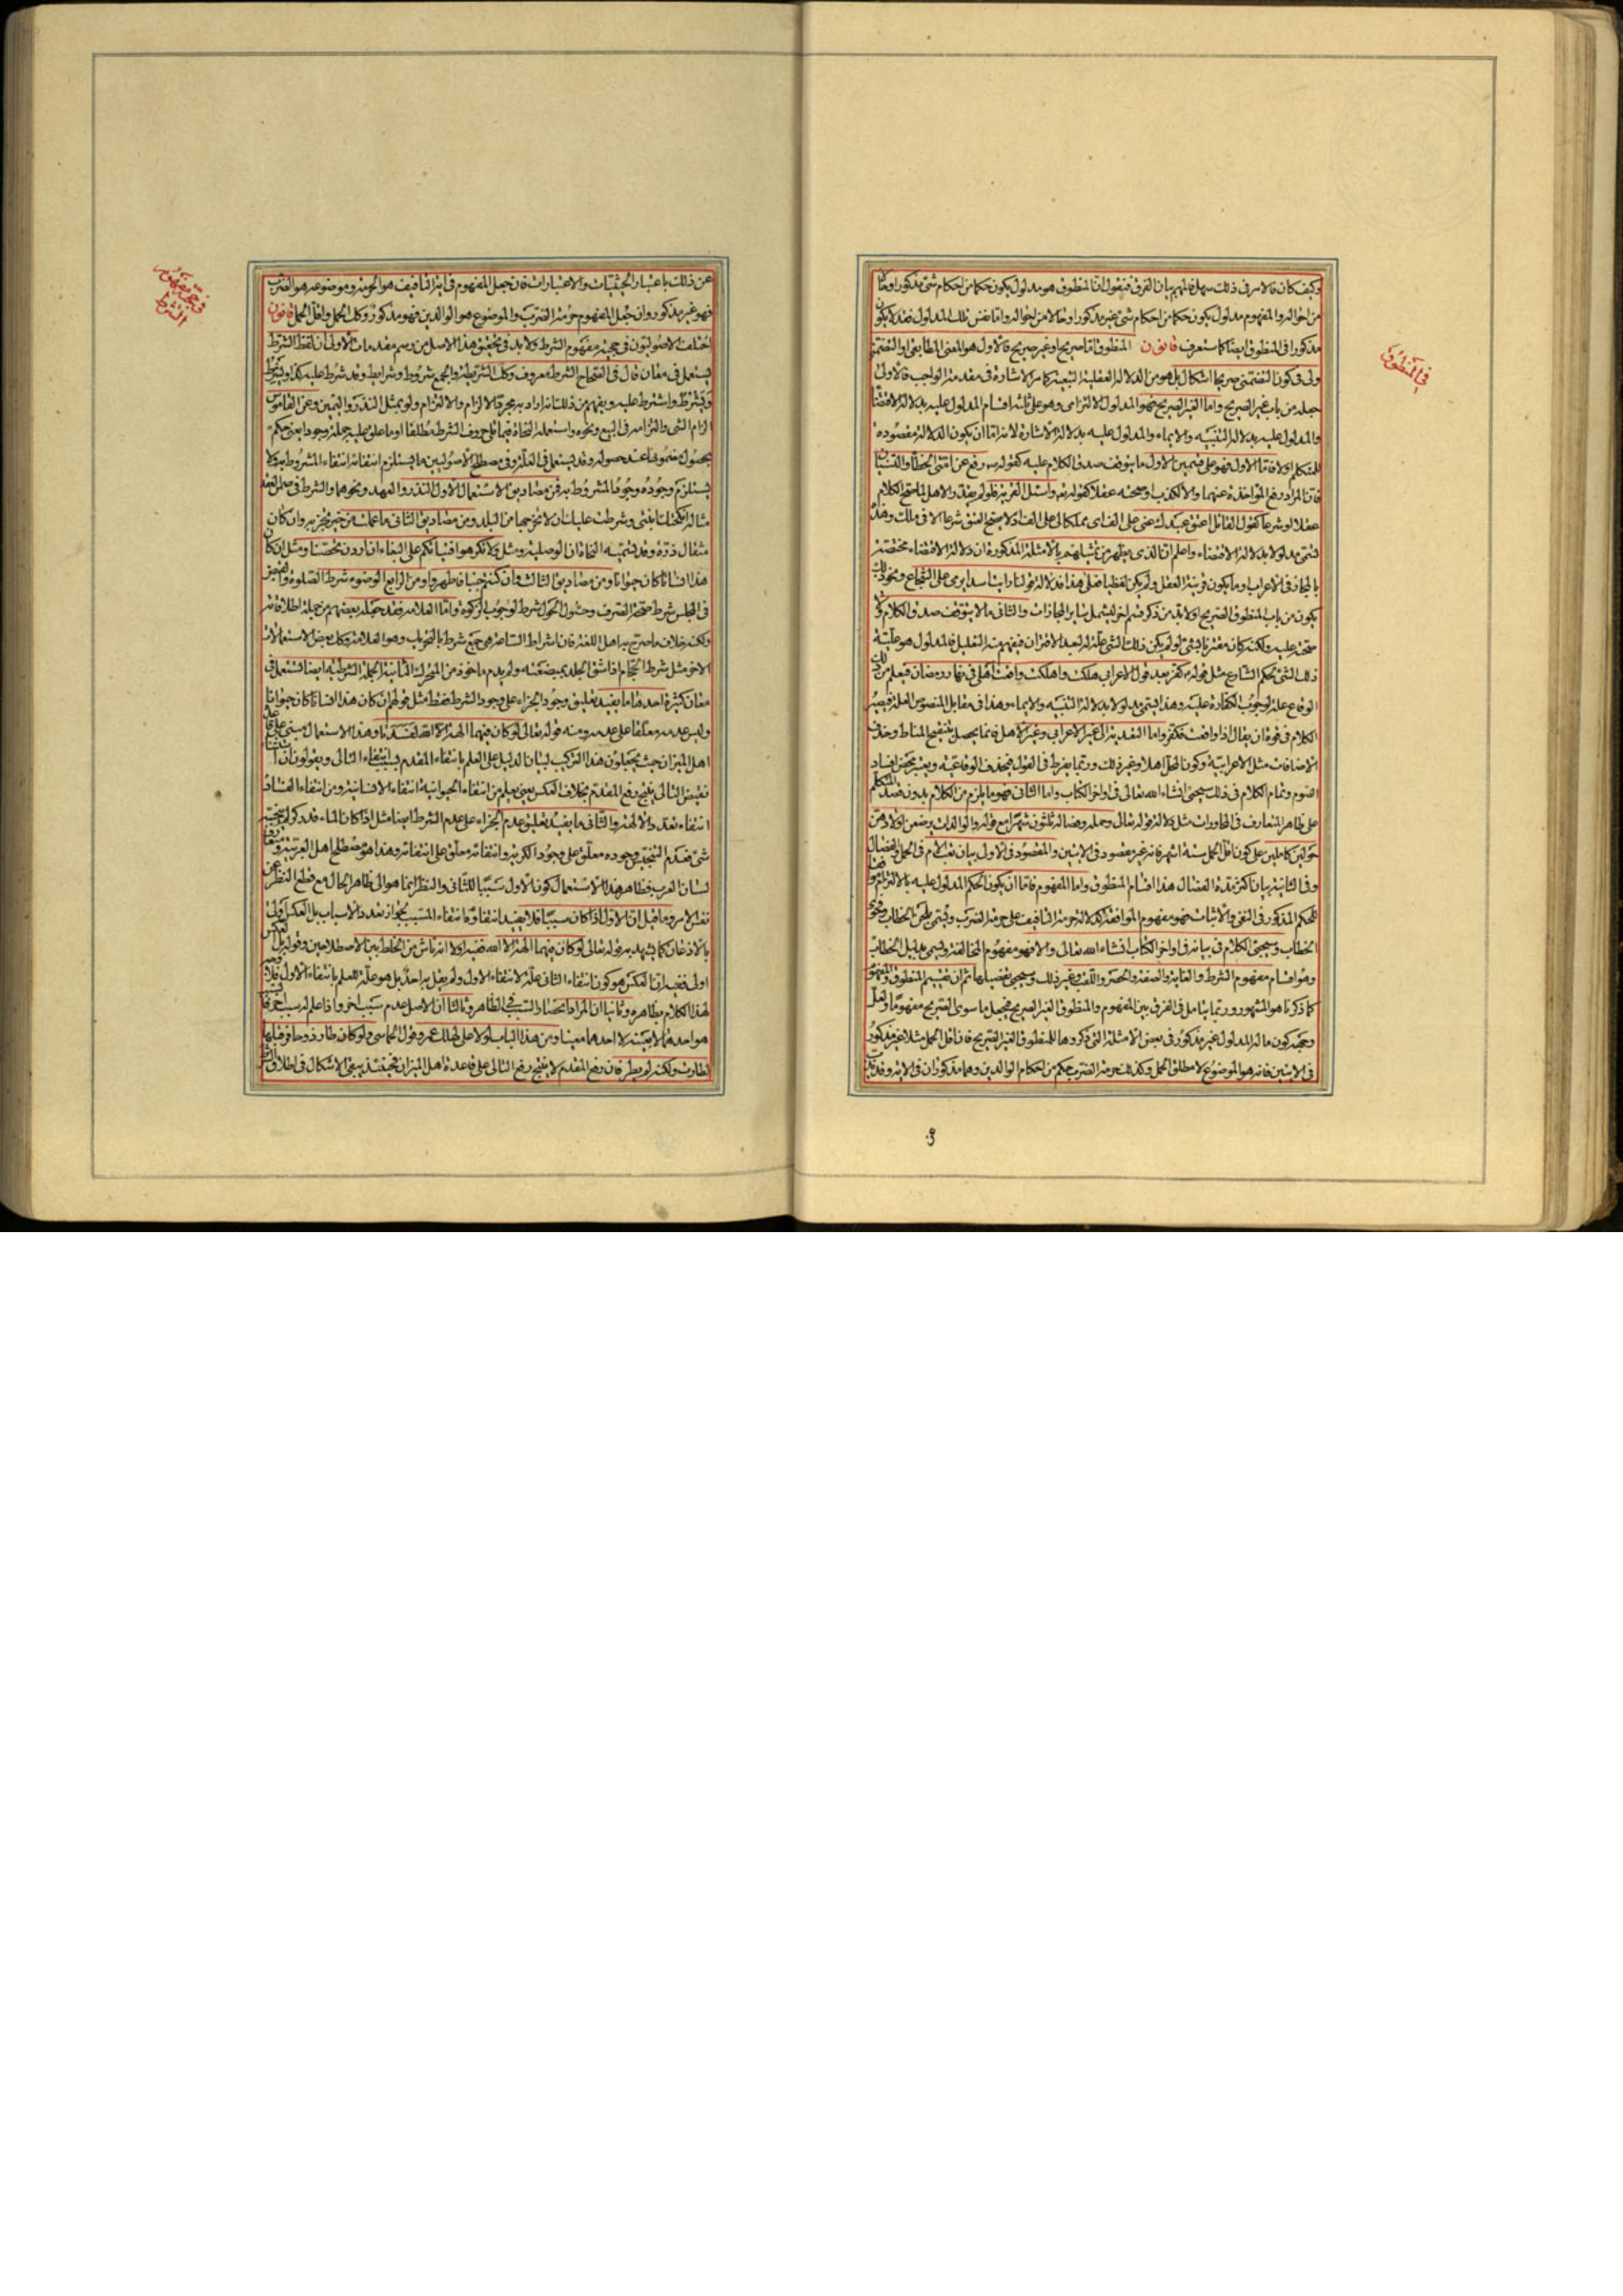 في المنطوق
وكيف كان فالامر في ذلك سهل فالمهم بيان الفرق فنقول ان المنطوق هو مدلول يكون حكما من احكام شئ مذكور او حالا
من احواله والمفهوم مدلول يكون حكما من احكام شئ غير مذكور او حالا من احواله واما نفس ذلك المدلول فقد لا يكون
مذكورا في المنطوق ايضا كما ستعرف قانون المنطوق اما صريح او غير صريح فالاول هو المعنى المطابقي او التضمني
ولى في كون التضمني صريحا اشكال بل هو من الدلالة العقلية التبعية كما مر الاشارة في مقدمة الواجب فالاولى
جعله من باب غير الصريح واما الغير الصريح فهو المدلول الالتزامى وهو على ثلثة اقسام المدلول عليه بدلالة الاقتضاء
والمدلول عليه بدلالة التنبيه والايماء والمدلول عليه بدلالة الاشارة لانه اما ان يكون الدلالة مقصودة
للمتكلم او لا فاما الاول فهو على قسمين الاول ما يتوقف صدق الكلام عليه كقوله رفع عن امتى الخطاء والنسيان
فان المراد رفع المؤاخذة عنهما والا لكذب او صحته عقلا كقوله تع واسئل القرية فلو لم يقدر الاهل لما صح الكلام
عقلا او شرعا كقول القائل اعتق عبدك عنى على الف اى مملكا لى على الف اذ لا يصح العتق شرعا الا في ملك وهذا
يسمى مدلولا بدلالة الاقتضاء واعلم ان الذى يظهر من تمثيلهم بالامثلة المذكورة ان دلالة الاقتضاء مختصة
بالمجاز في الاعراب وما يكون قرينة العقل ولم يكن لفظيا فعلى هذا فدلالة قولنا رايت اسدا يرمى على الشجاع ونحو ذلك
يكون من باب المنطوق الصريح او لابد من ذكر قسم اخر ليشمل سائر المجازات والثانى ما لا يتوقف صدق الكلام ولا
صحته عليه ولكنه كان مقترنا بشئ لو لم يكن ذلك الشئ علة له لبعد الاقتران فيفهم منه التعليل فالمدلول هو علية
ذلك الشئ لحكم الشارع مثل قوله كفر بعد قول الاعرابي هلكت واهلكت واقعت اهلى في نهار رمضان فيعلم من ذلك ان
الوقاع علة لوجوب الكفارة عليه وهذا يسمى مدلولا بدلالة التنبيه والايماء وهذا في مقابل المنصوص العلة فيصير
الكلام في قوة ان يقال اذا واقعت فكفر واما التعدية الى غير الاعرابي وغير الاهل فانما يحصل بتنقيح المناط وحذف
الاضافات مثل الاعرابية وكون المحل اهلا وغير ذلك وربما يفرط في القول فيحذف الوقاع فيه ويعتبر محض افساد
الصوم وتمام الكلام في ذلك سيجئ انشاء الله تعالى في اواخر الكتاب واما الثانى فهو ما يلزم من الكلام بدون قصد المتكلم
على ظاهر المتعارف في المحاورات مثل دلالة قوله تعالى وحمله وفصاله ثلثون شهرا مع قوله والوالدات يرضعن اولادهن
حولين كاملين على كون اقل الحمل ستة اشهر فانه غير مقصود في الايتين والمقصود في الاول بيان تعب الام في الحمل والفصال
وفى الثانية بيان اكثر مدة الفصال هذا اقسام المنطوق واما المفهوم فاما ان يكون الحكم المدلول عليه بالالتزام موافقا
للحكم المذكور في النفى والاثبات فهو مفهوم الموافقة كدلالة حرمة التافيف على حرمة الضرب ويسمى بلحن الخطاب وفحوى
الخطاب وسيجئ الكلام في بيانه في اواخر الكتاب انشاء الله تعالى والا فهو مفهوم المخالفة ويسمى بدليل الخطاب
وهو اقسام مفهوم الشرط والغاية والصفة والحصر واللقب وغير ذلك وسيجئ تفصيلها ثم ان تقسيم المنطوق والمفهوم
كما ذكرنا هو المشهور وربما يتامل في الفرق بين المفهوم والمنطوق الغير الصريح فيجعل ما سوى الصريح مفهوما ولعل
وجهه كون ما له المدلول غير مذكور في بعض الامثلة التى ذكروها للمنطوق الغير الصريح فان اقل الحمل مثلا غير مذكور
في الايتين فانه هو الموضوع لا مطلق الحمل وكذلك حرمة الضرب حكم من احكام الوالدين وهما مذكوران في الاية وقد
في حجية مفهوم الشرط
عن ذلك باعتبار الحيثيات والاعتبارات فان جعل المفهوم في اية التافيف هو الحرمة وموضوعه هو الضرب
فهو غير مذكور وان جعل المفهوم حرمة الضرب والموضوع هو الوالدين فهو مذكور وكك الحمل واقل الحمل قانون
اختلف الاصوليون في حجية مفهوم الشرط ولا بد في تحقيق هذا الاصل من رسم مقدمات الاولى ان لفظ الشرط
يستعمل في معان قال في الصحاح الشرط معروف وكك الشريطة والجمع شروط وشرايط وقد شرط عليه كذا ويشرط
ويشرط واشترط عليه ويفهم من ذلك انه اراد به مجرد الالزام والالتزام ولو بمثل النذر واليمين وعن القاموس
الزام الشئ والتزامه في البيع ونحوه واستعمله النحاة فيما تلى حروف الشرط مطلقا او ما علق عليه جملة وجودا يعنى حكم
بحصول مضمونها عند حصوله وقد يستعمل في العلة وفى مصطلح الاصوليين ما يستلزم انتفائه انتفاء المشروط به ولا
يستلزم وجوده وجود المشروط به فمن مصاديق الاستعمال الاول النذر والعهد ونحوهما والشرط في ضمن العقد
مثاله انكحتك ابنتى وشرطت عليك ان لا تخرجها من البلد ومن مصاديق الثانى ما عملت من خير تجز به وان كان
مثقال ذرة وقد يسميه النحاة ان الوصلية ومثل ولا تكرهوا فتياتكم على البغاء ان اردن تحصنا ومثل ان كان
هذا انسانا كان حيوانا ومن مصاديق الثالث وان كنتم جنبا فاطهروا ومن الرابع الوضوء شرط الصلوة والقبض
في المجلس شرط صحة الصرف وحئول الحول شرط لوجوب الزكوة واما العلامة فقد جعله بعضهم من جملة اطلاقاته
ولكنه خلاف ما صرح به اهل اللغة فان اشراط الساعة هى جمع شرط بالتحريك وهو العلامة وكك بعض الاستعمالات
الاخر مثل شرط الحجام اذا شق الجلد بمبضعه ولم يدم ماخوذ من المتحرك الثانية الجملة الشرطية ايضا تستعمل في
معان كثيرة احدها ما يفيد تعليق وجود الجزاء على وجود الشرط فقط مثل قولهم ان كان هذا انسانا كان حيوانا
وليس عدمه معلقا على عدمه ومنه قوله تعالى لو كان فيهما الهة الا الله لفسدتا وهذا الاستعمال مبنى على قاعدة
اهل الميزان حيث يجعلون هذا التركيب لبيان الدليل على العلم بانتفاء المقدم بسبب انتفاء التالى ويقولون ان استثناء
نقيض التالى ينتج رفع المقدم بخلاف العكس يعنى يعلم من انتفاء الحيوانية انتفاء الانسانية ومن انتفاء الفساد
انتفاء تعدد الالهة والثانى ما يفيد تعليق عدم الجزاء على عدم الشرط ايضا مثل اذا كان الماء قدر كر لم ينجسه
شئ فعدم التنجس وجوده معلق على وجود الكرية وانتفائه معلق على انتفائه وهذا هو مصطلح اهل العربية ومتفاهم
لسان العرب فظاهر هذا الاستعمال كون الاول سببا للثانى والنظر انما هو الى ظاهر الحال مع قطع النظر عن
نفس الامر وما قيل ان الاول اذا كان سببا فلا يفيد انتفاؤه انتفاء المسبب لجواز تعدد الاسباب بل العكس اولى
بالاذعان كما يشهد به قوله تعالى لو كان فيهما الهة الا الله ففيه اولا انه ناش من الخلط بين الاصطلاحين وقوله بل العكس
اولى فيه ان العكس هو كون انتفاء الثانى علة لانتفاء الاول ولم يقل به احد بل هو علة للعلم بانتفاء الاول فلا
لهذا الكلام بظاهره وثانيا ان المراد انحصار السبب في الظاهر وثالثا ان الاصل عدم سبب اخر واذا علم له سبب اخر فالسبب
هو احدهما لا بعينه لا احدهما معينا ومن هذا الباب لولا على لهلك عمر وقول الحماسى ولو طار ذو حافر قبلها
لطارت ولكنه لم يطر فان رفع المقدم لا ينتج رفع التالى على قاعدة اهل الميزان فحينئذ يبقى الاشكال في اطلاق